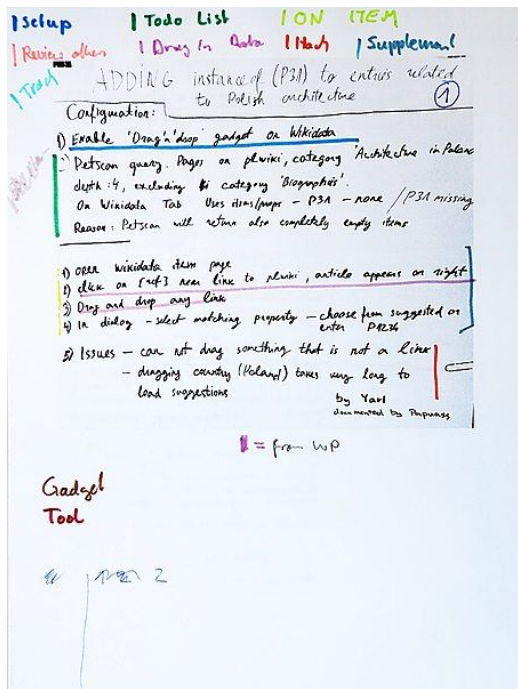 | Setup | Todo List | ON ITEM
| Review others | Drag In Data | Hach | Supplement
| Track
ADDING instance of (P31) to entries related
to Polish architecture
1
Configuration:
1) Enable 'Drag'n'drop' gadget on Wikidata
2) Petscan query. Pages on plwiki, category 'Architecture in Poland
depth: 4, excluding category 'Biographies'.
On Wikidata Tab Uses items/props – P31 – none / P31 missing
Reason: Petscan will return also completely empty items
1) open wikidata item page
2) click on [ref] near link to plwiki, article appears on right
3) Drag and drop any link
4) In dialog – select matching property – choose from suggested or
enter P1234
5) Issues – can not drag something that is not a link
– dragging country (Poland) takes very long to
load suggestions
by Yarl
documented by
| = from WP
Gadget
Tool
2